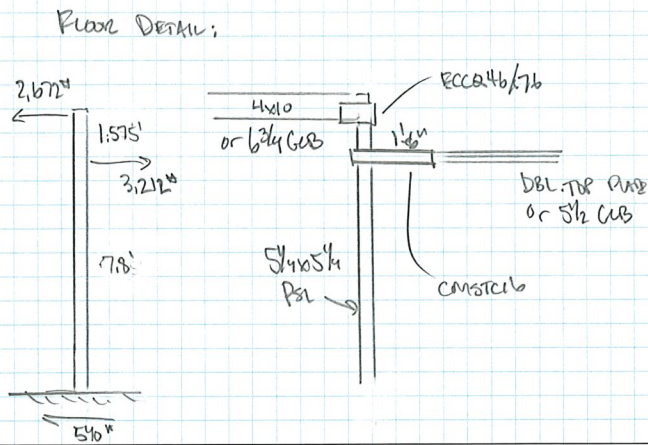 FLOOR DETAIL:
2,672#
1.575'
3,212#
7.8'
540#
4x10
or 6 3/4 GLB
ECCQ46/76
1'-6"
DBL. TOP PLATE
or 5 1/2 GLB
5 1/4 x 5 1/4
PSL
CMSTC16